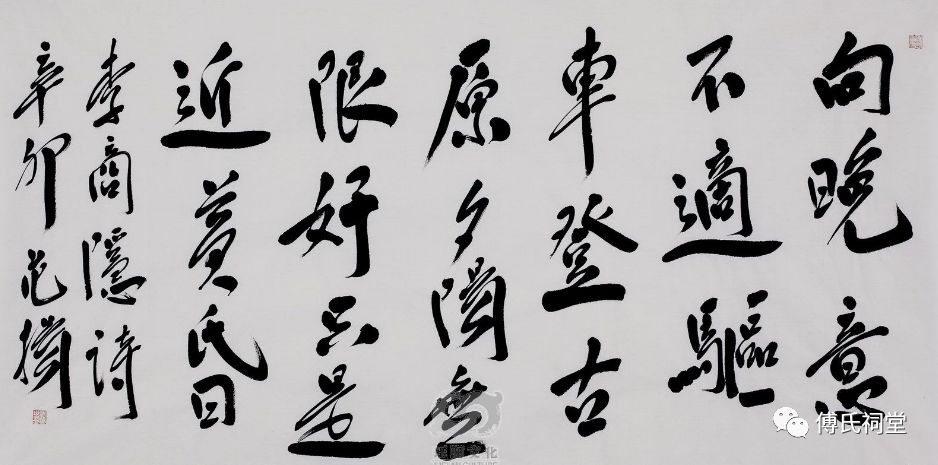 向晚意
不適驅
車登古
原夕陽無
限好只是
近黄昏
李商隱詩
辛卯
傅氏祠堂